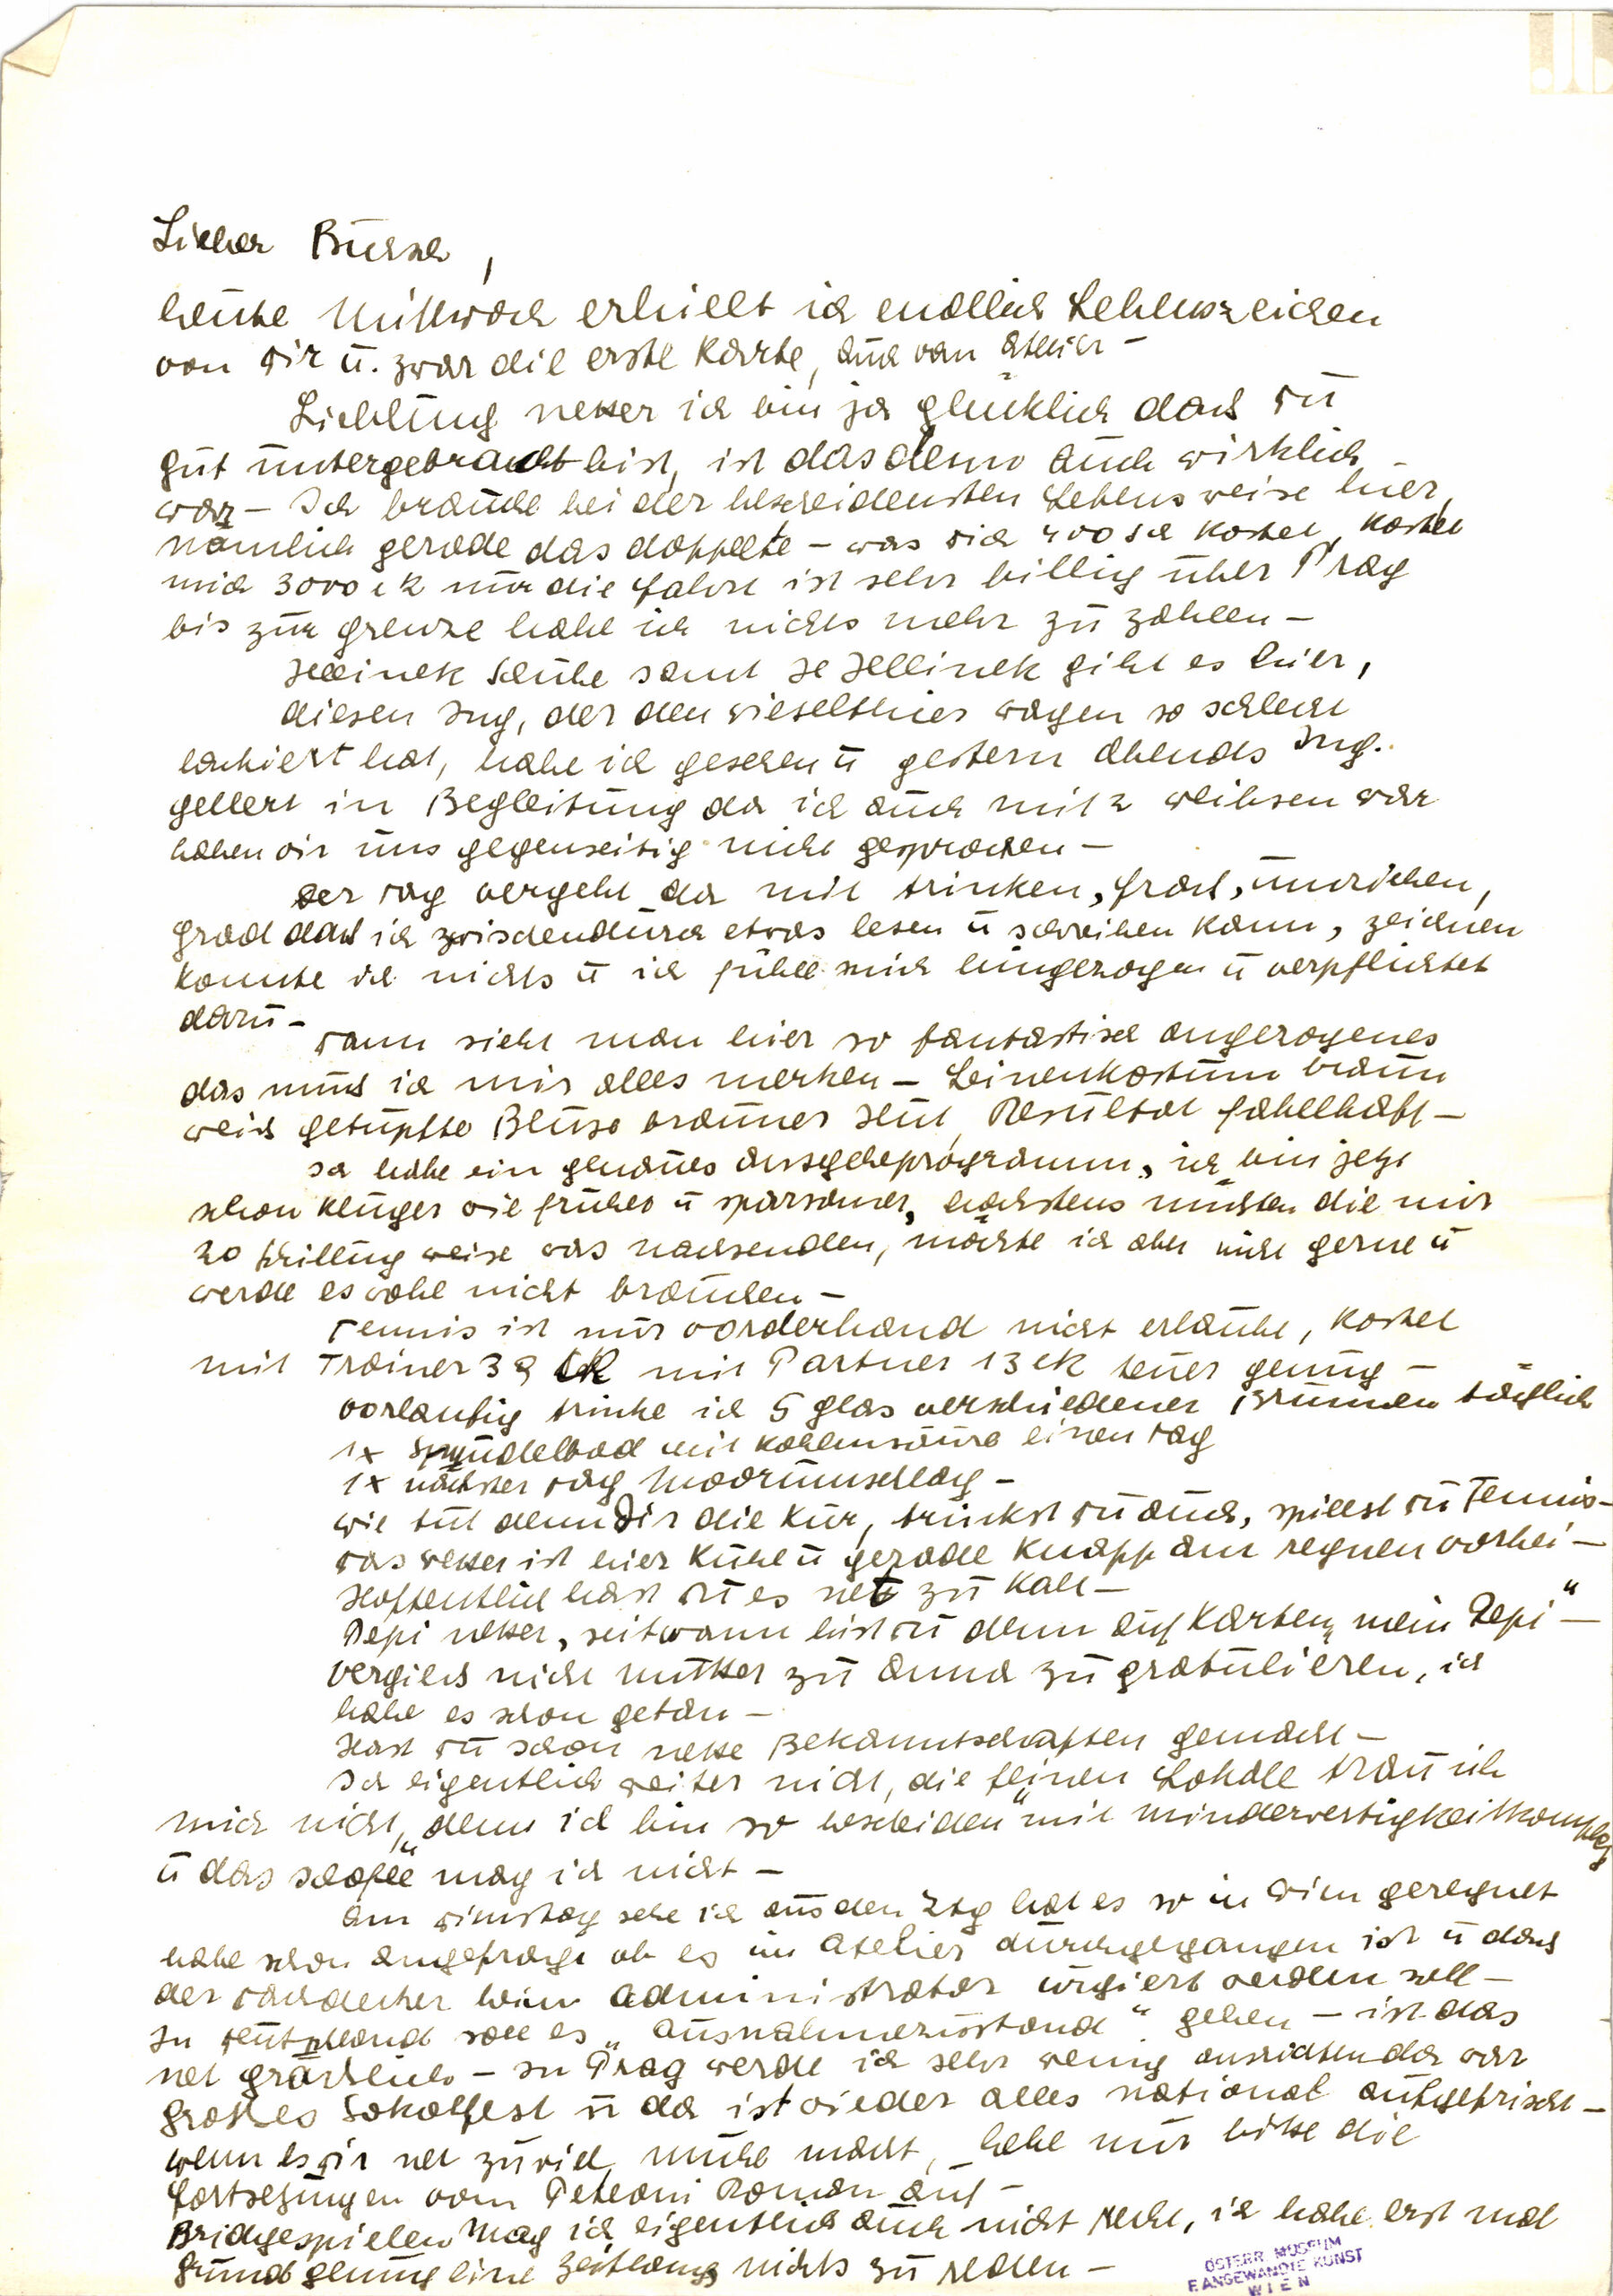 Lieber Bursch,
heute Mittwoch erhielt ich endlich Lebenszeichen
von Dir u. zwar die erste Karte, auch vom Atelier –
Liebling netter ich bin ja glücklich dass Du
gut untergebracht bist, ist das denn auch wirklich
war – Ich brauche bei der bescheidensten Lebensweise hier,
nämlich gerade das doppelte – was dich 400 sch kostet, kostet
mich 3000 cK nur die Fahrt ist sehr billig über Prag
bis zur Grenze habe ich nichts mehr zu zahlen –
Jellinek Schuhe samt Jellinek gibt es hier,
diesen Ing, der den wagen so schlecht
lackiert hat, habe ich gesehen u gestern Abends Ing.
Gellert in Begleitung da ich auch mit 2 weibsen war
haben wir uns gegenseitig nicht gesprochen –
Der Tag vergeht da mit trinken, frass,
grad dass ich zwischendurch etwas lesen u schreiben kann, zeichnen
konnte ich nichts u ich fühle mich hingezogen u verpflichtet
dazu –
Dann sieht man hier so fantastisch angezogenes
das muss ich mir alles merken – Leinenkostüm braun
weiss getupfte Bluse brauner Hut, Resultat fabelhaft –
Ich habe ein genaues Ausgabeprogramm, ich bin jetzt
schon kluger wie früher u sparsamer, höchstens müssten die mir
20 Schilling weise was nachsenden, möchte ich aber nicht gerne u
werde es wohl nicht brauchen –
Tennis ist mir vorderhand nicht erlaubt, kostet
mit Trainer 39 cK mit Partner 13 cK teuer genug –
vorlaufig trinke ich 5 glas verschiedener Brunnen täglich
1x Sprudelbad mit Kohlensäure einen Tag
1x nächster Tag Moorumschlag –
wie tut denn Dir die Kur, trinkst Du auch, spielst Du Tennis –
Das wetter ist hier kühl u gerade knapp am regnen vorbei –
Hoffentlich hast Du es net zu kalt –
Pepi netter, seitwann bist Du denn auf Karten „mein Pepi" –
vergiess nicht Mutter zu Anna zu gratulieren, ich
habe es schon getan –
Hast Du schon nette Bekanntschaften gemacht –
Ich eigentlich weiter nicht, die feinen Lokale trau ich
mich nicht, „denn ich bin so bescheiden" mit Minderwertigkeitkomplex
u das schofle mag ich nicht –
Am Dinstag sehe ich aus den Ztg hat es so in Wien geregnet
habe schon angefragt ob es im Atelier durchgegangen ist u dass
der Dachdecker beim Administrator urgiert werden soll –
In Deutschland soll es „Ausnahmezustand" geben – ist das
net grässlich – In Prag werde ich sehr wenig ausrichten da war
grosses Sokolfest u da ist wieder alles national aufgefrischt –
wenn es Dir net zuviel mühe macht, hebe mir bitte die
Fortsezungen vom Roman auf –
Bridgespielen mag ich eigentlich auch nicht recht, ich habe erst mal
Grund genug eine Zeitlang nichts zu reden –
ÖSTERR. MUSEUM
F. ANGEWANDTE KUNST
WIEN